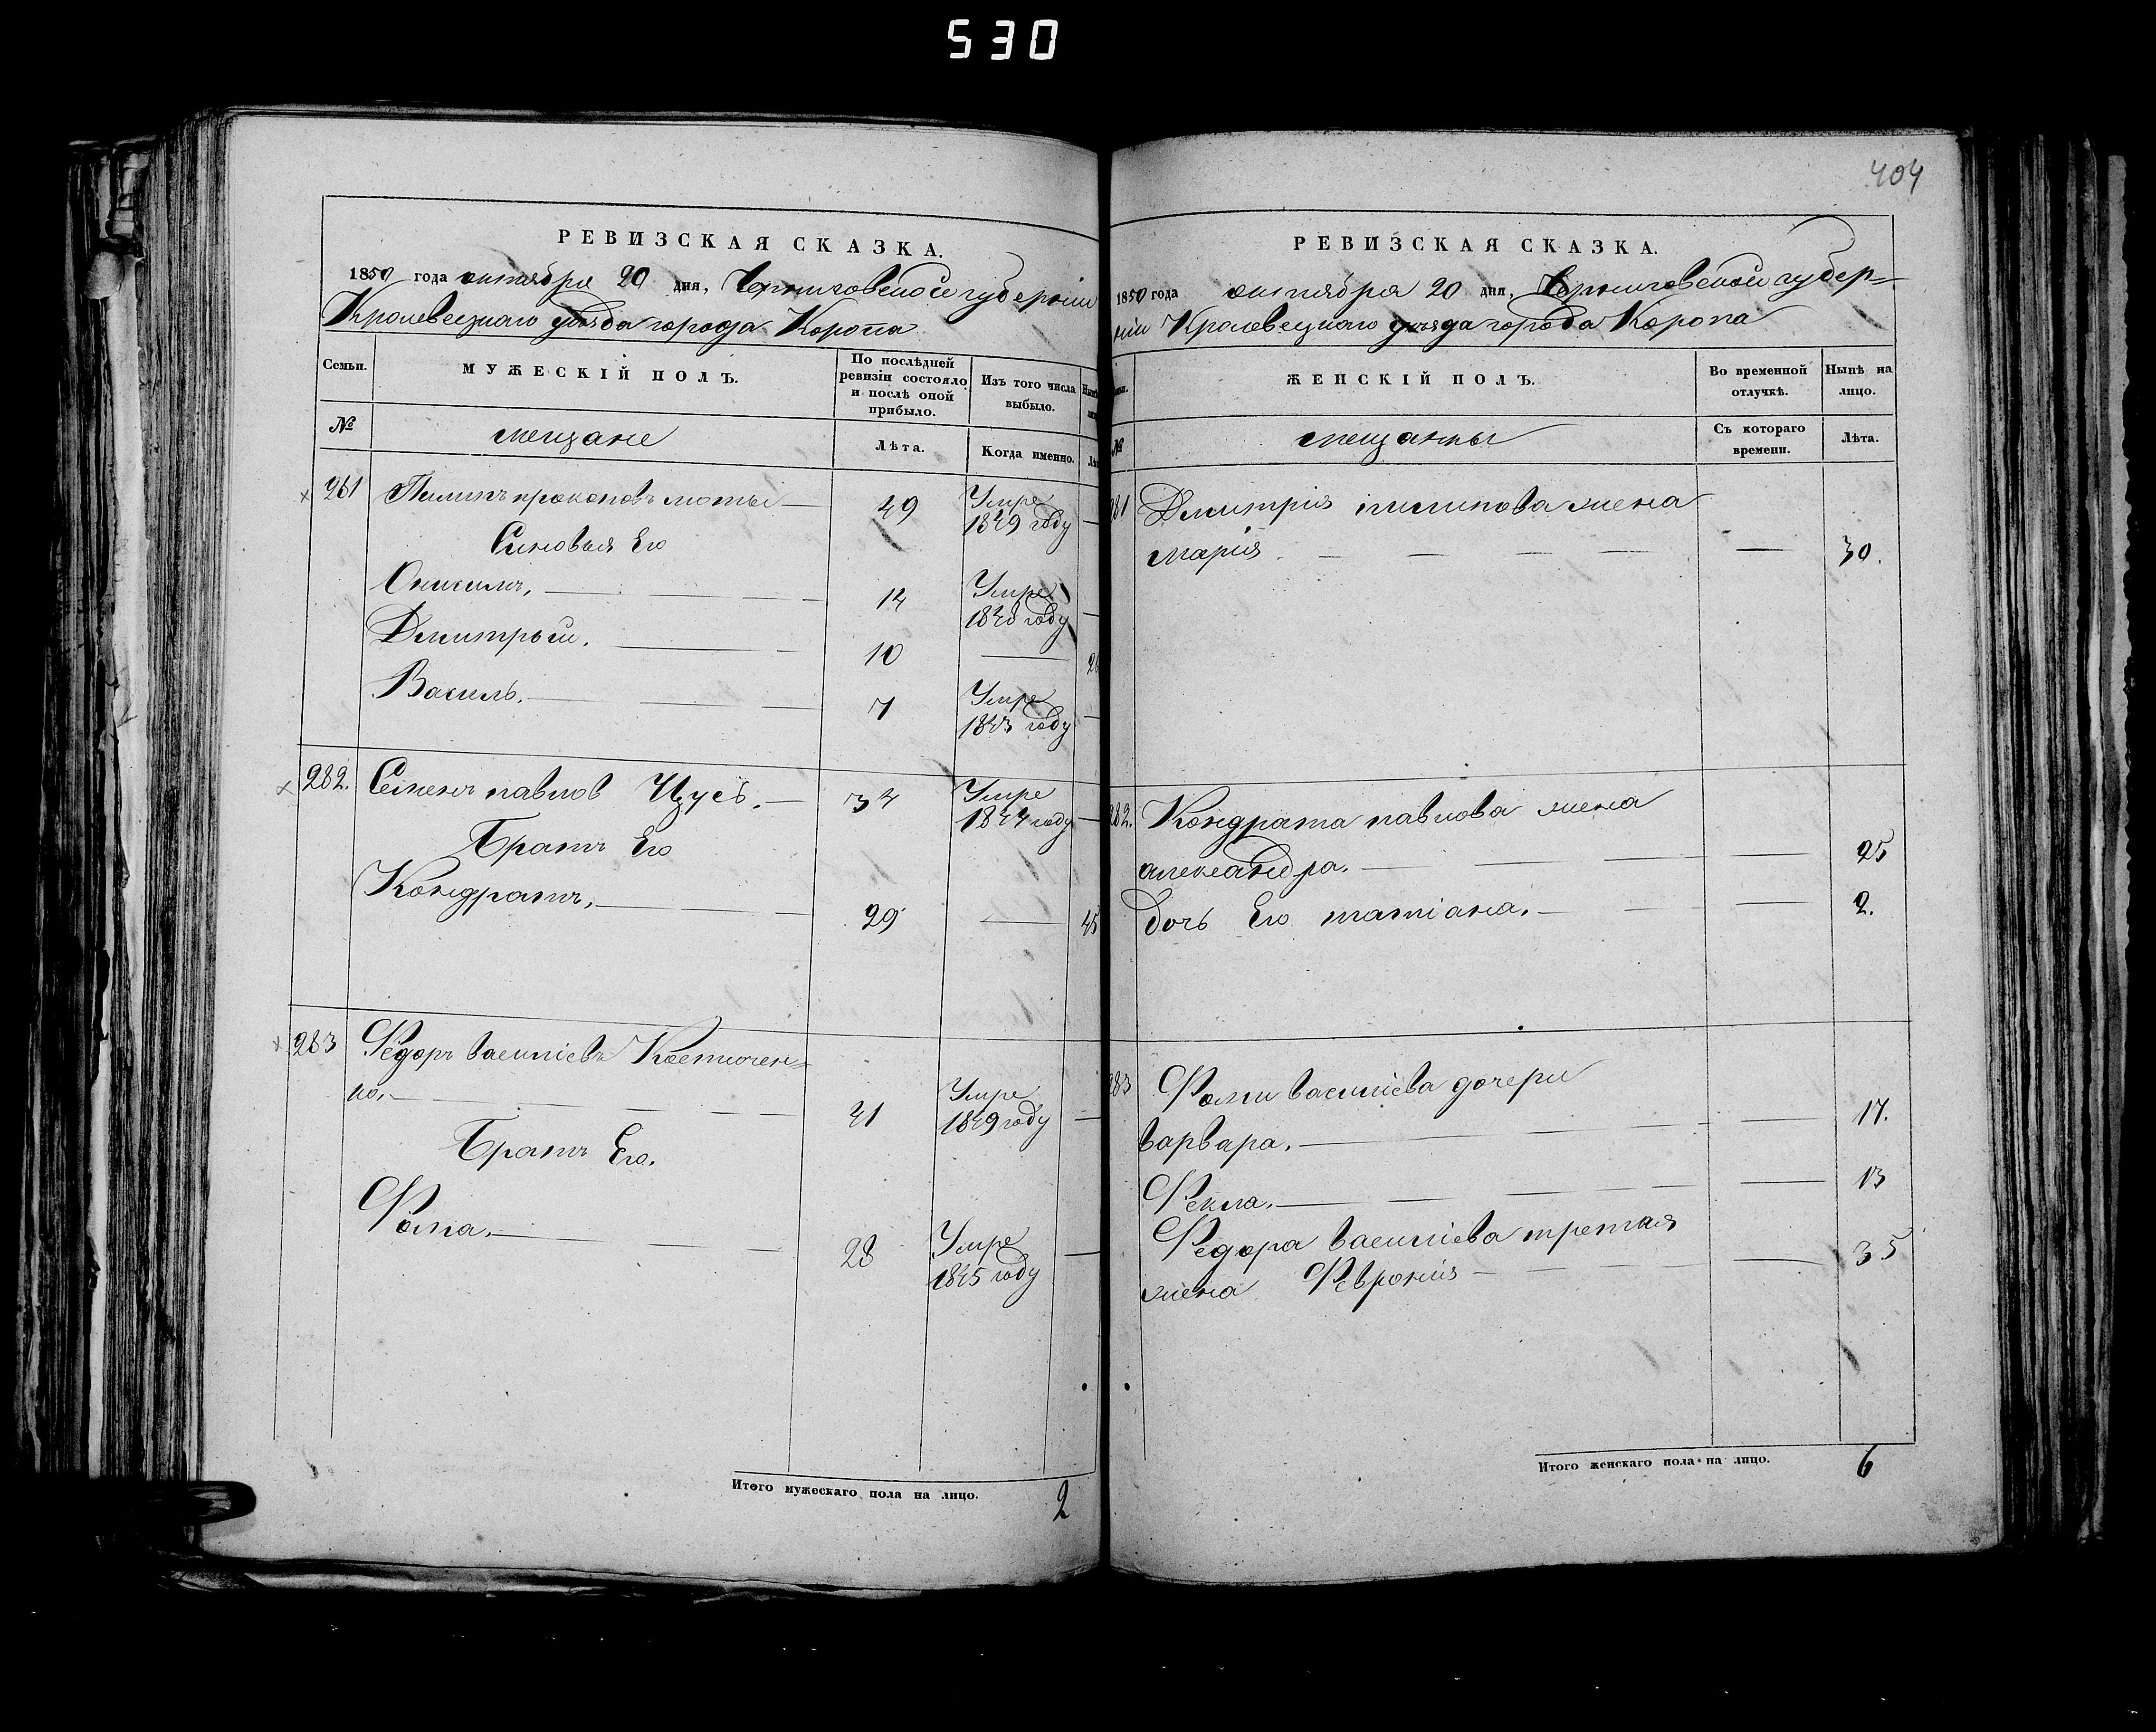 530
404
РЕВИЗСКАЯ СКАЗКА.
1850 года октября 20 дня, Черниговской губерніи
Кролевецкаго уѣзда города Коропа
Семьи.
МУЖЕСКІЙ ПОЛЪ.
По послѣдней
ревизіи состояло
и послѣ оной
прибыло.
Изъ того числа
выбыло.
№
мещане
Лѣта.
Когда именно.
281 Пилипъ прокоповъ 49 Умре
1849 году
Синовья Его
Онисимъ, 14 Умре
1848 году
Дмитрый. 10
Василь. 7 Умре
1843 году
282. Семенъ павлов Цусь. 34 Умре
1844 году
Братъ Его
Кондратъ, 29 45
283 Федоръ василіевъ Костючен=
ко, 41 Умре
1849 году
Братъ Его.
Фома. 28 Умре
1845 году
Итого мужескаго пола на лицо. 2
РЕВИЗСКАЯ СКАЗКА.
1850 года октября 20 дня, Черниговской губер=
ніи Кролевецкаго уезда города Коропа
ЖЕНСКІЙ ПОЛЪ.
Во временной
отлучкѣ.
Нынѣ на
лицо.
№
мещанки
Съ котораго
времени.
Лѣта.
281 Дмитрія пилипова жена
марія 30.
282. Кондрата павлова жена
александра. 25
дочь Его татіана. 2.
283 Фоми василіева дочери
варвара. 17.
Фекла. 13
Федора василіева третая
жена Феѳронія 35
Итого женскаго пола на лицо. 6